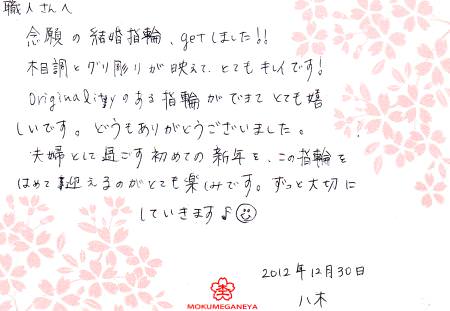 職人さんへ
念願の結婚指輪、getしました!!
木目調とグリ彫りが映えて、とてもキレイです!
originalityのある指輪ができてとても嬉
しいです。どうもありがとうございました。
夫婦として過ごす初めての新年を、この指輪を
はめて迎えるのがとても楽しみです。ずっと大切に
していきます♪
2012年12月30日
八木
MOKUMEGANEYA